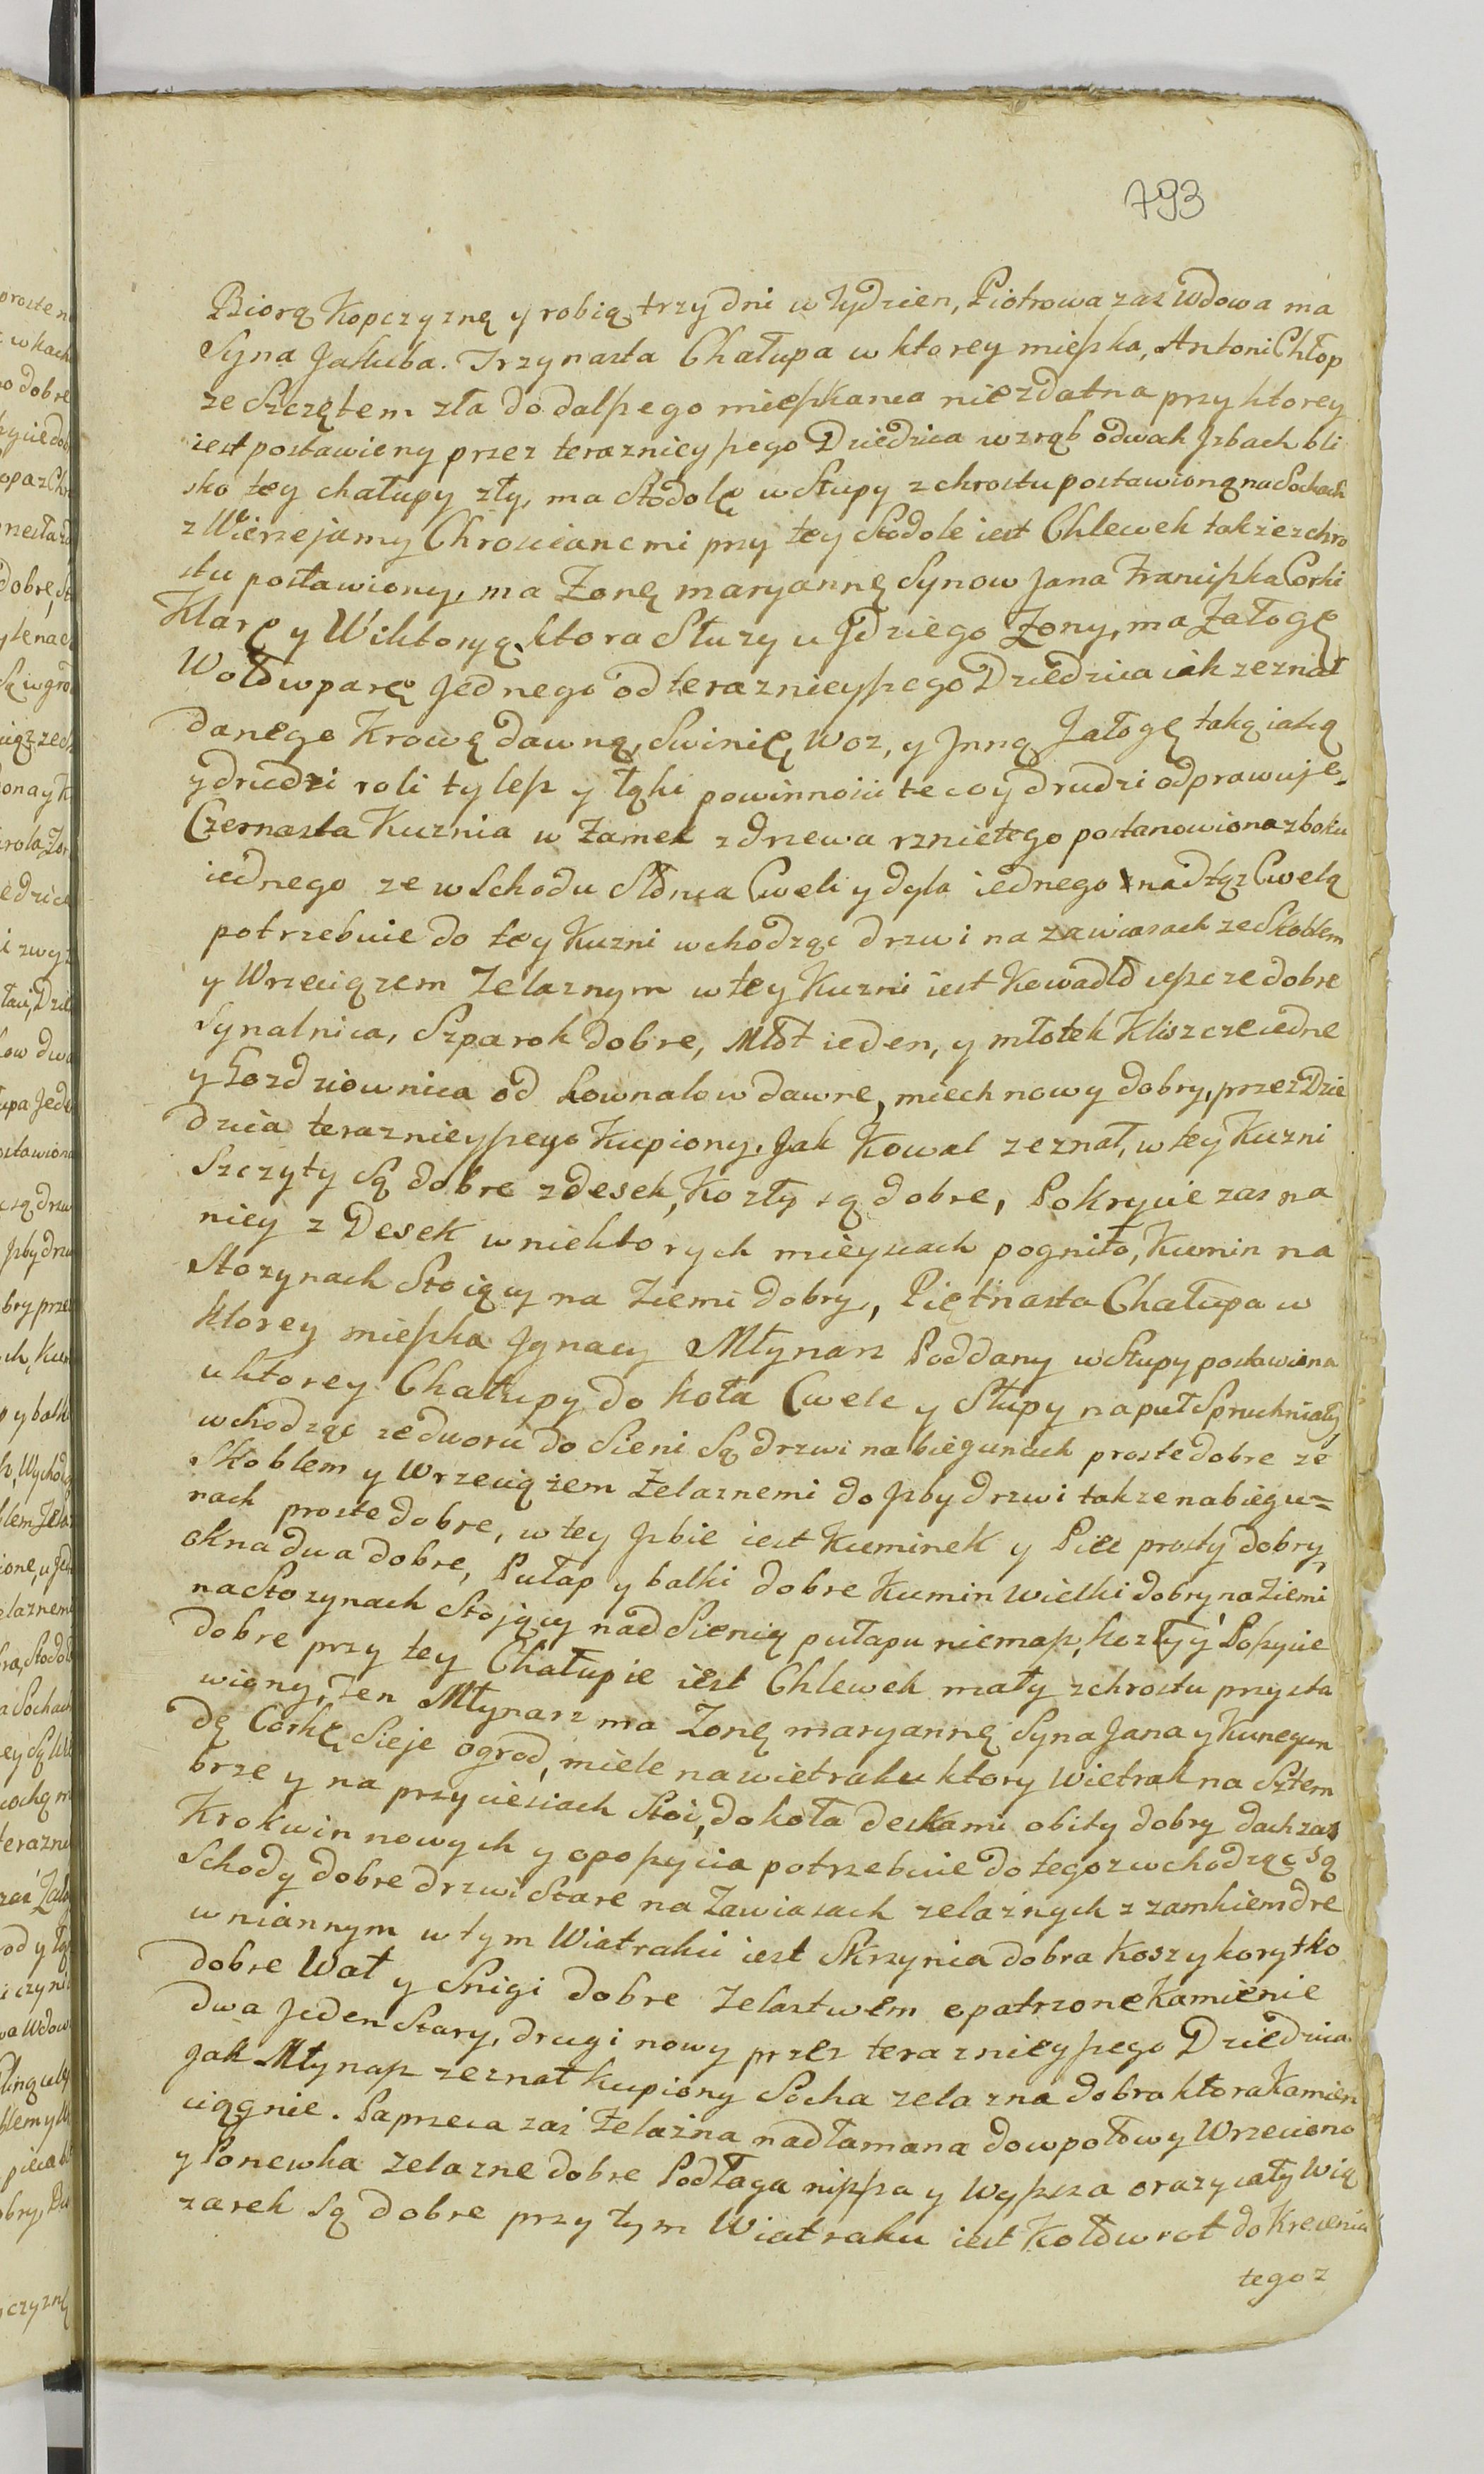 793
Biorą Kopczyznę y robią trzy dni w Tydzien, Piotrowa zas Wdowa ma
Syna Jakuba. Trzynasta Chałupa w ktorey mięszka, Antoni Chłop
ze Szczętem zła do dalszego mięszkania niezdatna przy ktorey
iest postawieny przez teraznieyszego Dziedzica wzrąb o dwuh Jzbach bli
sko tey chałupy zły, ma Stodolę w Słupy z chrostu postawioną na Sochach
z Wierzejamy Chroscianemi przy tey Stodole iest Chlewek także z chro
stu postawiony, ma Żonę maryannę Synow Jana Franciszka Corki
Klarę y Wiktoryą, ktora Służy u Jdziego Żony, ma Załogę
Wołow parę Jednego od teraznieyszego Dziedzica iak zeznał
danego Krowę dawną, Swinię, Woz, y Jnną Załogę taką iaką
y drudzi roli tylesz y łąki powinnosci te co y drudzi odprawuje.
Czernasta Kuznia w Zamek z drzewa rznietego postanowiona z boku
iednego ze wschodu Słonca Cweli y dyla iednego nadłąz Cwelą
potrzebuie do tey Kuzni wchodząc drzwi na zawiasach ze Skoblem
y Wrzeciązem Zelaznym w tey Kuzni iest Kowadło ieszcze dobre
Synalnica, Szparok dobre, Młot ieden, y młotek Kliszcze iedne
y Gozdziownica od kownalow dawne, miech nowy dobry, przez Dzie
dzica teraznieyszego Kupiony, Jak Kowal zeznał, w tey Kuzni
Szczyty Są dobre z desek, Kozły są dobre, Pokrycie zas na
niey z Desek w niektorych mieyscach pogniło, Kumin na
Stozynach Stoiący na Ziemi dobry, Piętnasta Chałupa w
ktorey mieszka Jgnacy Młynarz Poddany w Słupy postawiona
u ktorey Chałupy do koła Cwele y Słupy na puł Spruchniały
wchodząc ze dworu do Sieni Są drzwi na biegunach proste dobre ze
Skoblem y Wrzeciązem Żelaznemi do Jzby drzwi także na biegu=
nach proste dobre, w tey Jzbie iest Kuminek y Piec prosty dobry,
okna dwa dobre, Pułap y balki dobre Kumin Wielki dobry na Ziemi
na Stozynach Stojący nad Sienią pułapu niemasz, kozły y Poszycie
dobre przy tey Chałupie iest Chlewek mały z chrostu przysta
wiony, Ten Młynarz ma Żonę maryannę Syna Jana y Kunegun
dę Corkę, Sieje ogrod, miele na wietraku ktory Wietrak na Sztem
brze y na przyciesiach Stoi, do koła deskami obity dobry dach zas
Krokwin nowych y oposzycia potrzebuie do tegoz wchodząc są
Schody dobre drzwi Stare na Zawiasach zelaznych z zamkiem dre
wniannym w tym Wiatraku iest Skrzynia dobra Kosz y korytko
dobre Wał y Snigi dobre Zelastwem opatrzone Kamienie
dwa Jeden Stary, drugi nowy przez teraznieyszego Dziedzica
Jak Młynasz zeznał kupiony Socha zelazna dobra ktora Kamien
ciągnie. Paprzeca zas Żelażna nadłamana dowpołowy Wrzeciono
y Ponewka Zelazne dobre Podłaga nizsza y Wyszsza oraz y cały Wią
zarek Są dobre przy tym Wiatraku iest Kołowrot do Krecenia
tegoz